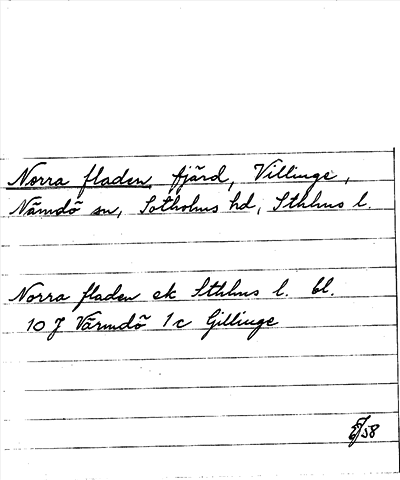 Norra fladen, fjärd, Villinge,
Nämdö sn, Sotholms hd, Sthlms l.
Norra fladen ek Sthlms l. bl.
10 J Värmdö 1c Gillinge
/58